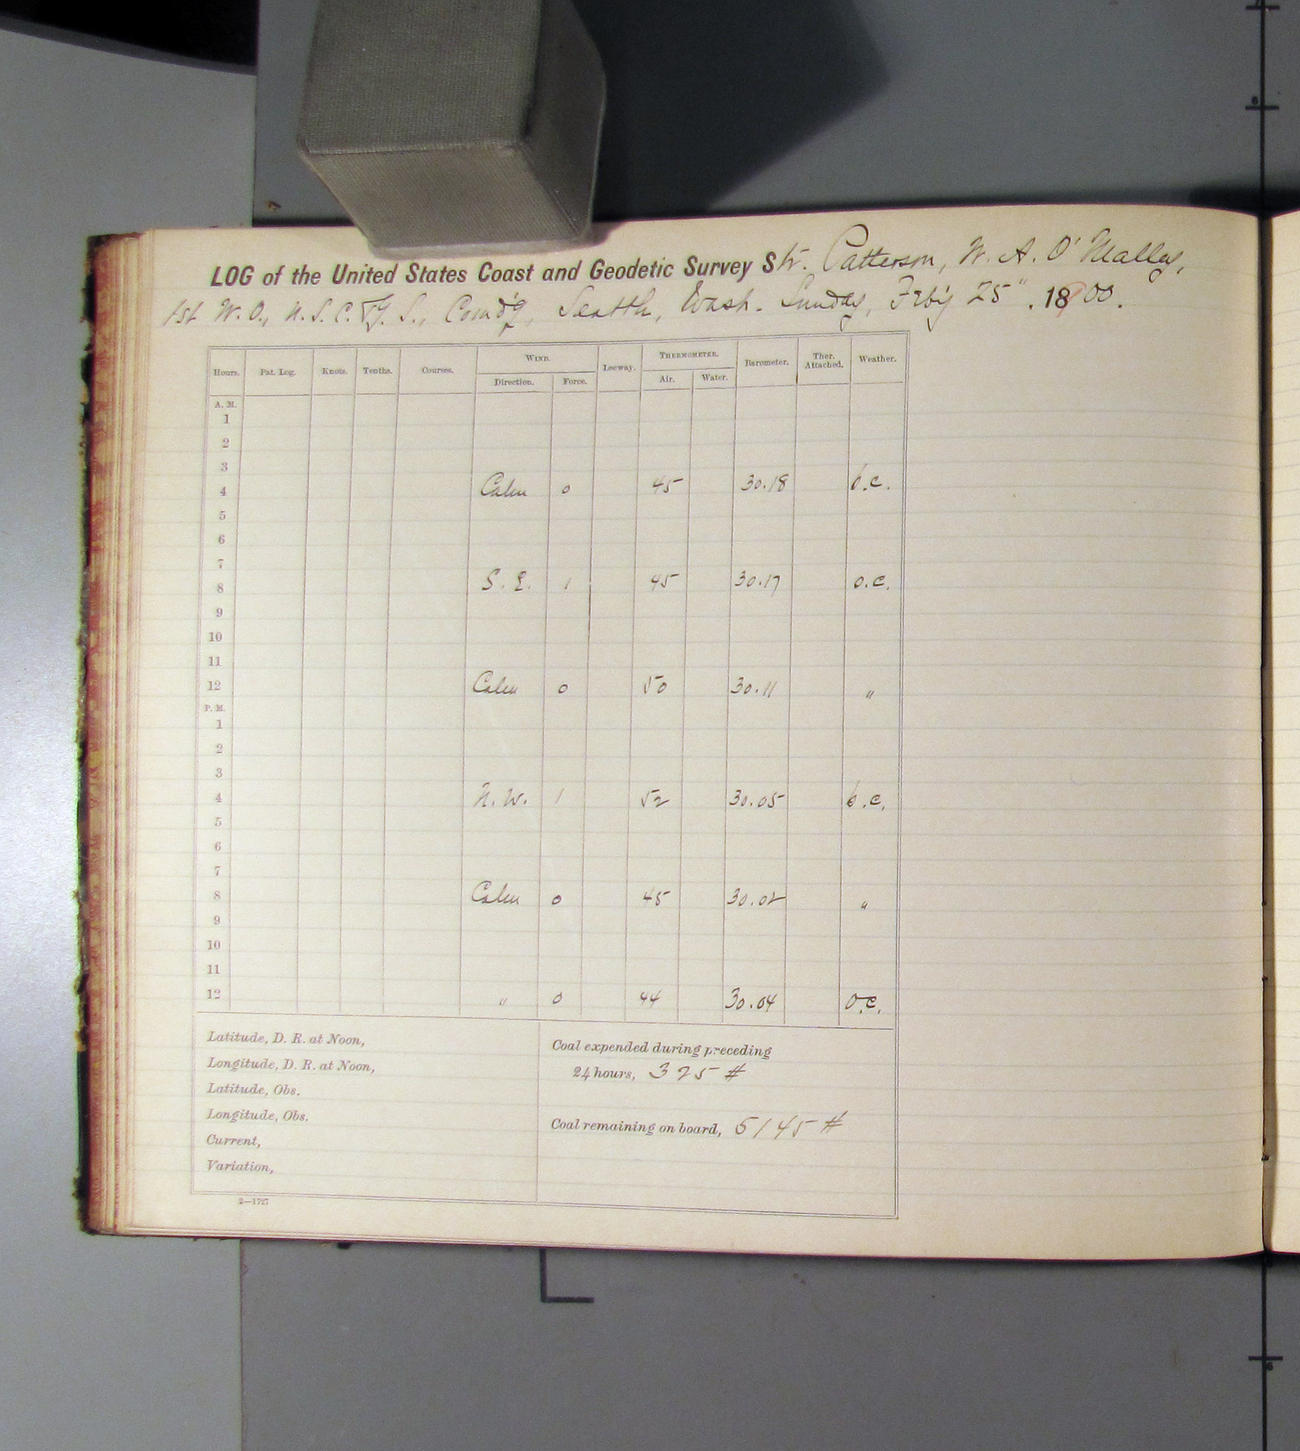 LOG of the United States Coast and Geodetic Survey Str. Patterson, W. A. O'Malley,
1st W. O., U. S. C. & G. S., Comd'g, Seattle, Wash. Sunday, Feb'y 25", 1900.
Hours. Pat. Log. Knots. Tenths. Courses. WIND. Leeway. THERMOMETER. Barometer. Ther. Attached. Weather.
Direction. Force. Air. Water.
A. M.
1
2
3
4 Calm 0 45 30.18 b.c.
5
6
7
8 S. E. 1 45 30.17 o.c.
9
10
11
12 Calm 0 50 30.11 "
P. M.
1
2
3
4 N. W. 1 52 30.05 b.c.
5
6
7
8 Calm 0 45 30.02 "
9
10
11
12 " 0 44 30.04 o.c.
Latitude, D. R. at Noon,
Longitude, D. R. at Noon,
Latitude, Obs.
Longitude, Obs.
Current,
Variation,
Coal expended during preceding
24 hours, 325 #
Coal remaining on board, 5145 #
2—1727